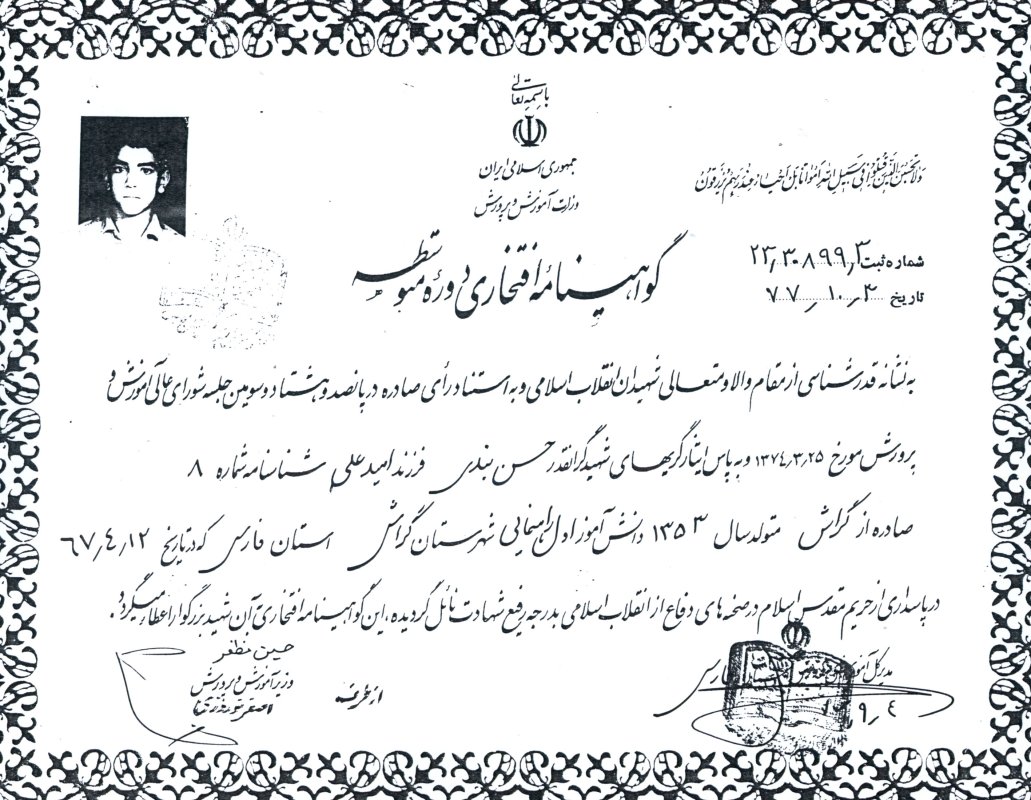 باسمه تعالی
جمهوری اسلامی ایران
وزارت آموزش و پرورش
ولا تحسبن الذین قتلوا فی سبیل الله امواتا بل احیاء عند ربهم یرزقون
شماره ثبت ۲۳٫۳۰۸۹۹٫۳
تاریخ ۷۷٫۱۰٫۳
گواهینامهٔ افتخاری دورهٔ متوسطه
به نشانه قدرشناسی از مقام والا و متعالی شهیدان انقلاب اسلامی و به استناد رأی صادره در پانصد و هشتاد و سومین جلسه شورای عالی آموزش و
پرورش مورخ ۱۳۷۴٫۳٫۲۵ و به پاس ایثارگریهای شهید گرانقدر حسن بندی فرزند امید علی شناسنامه شماره ۸
صادره از گراش متولد سال ۱۳۵۳ دانش آموز اول راهنمایی شهرستان گراش استان فارس که در تاریخ ۶۷٫۴٫۱۲
در پاسداری از حریم مقدس اسلام در صحنه های دفاع از انقلاب اسلامی بدرجه رفیع شهادت نائل گردیده، این گواهینامه افتخاری به آن شهید بزرگوار اعطاء میگردد.
مدیر کل آموزش و پرورش فارس
۹٫۴
از طرف
حسین مظفر
وزیر آموزش و پرورش